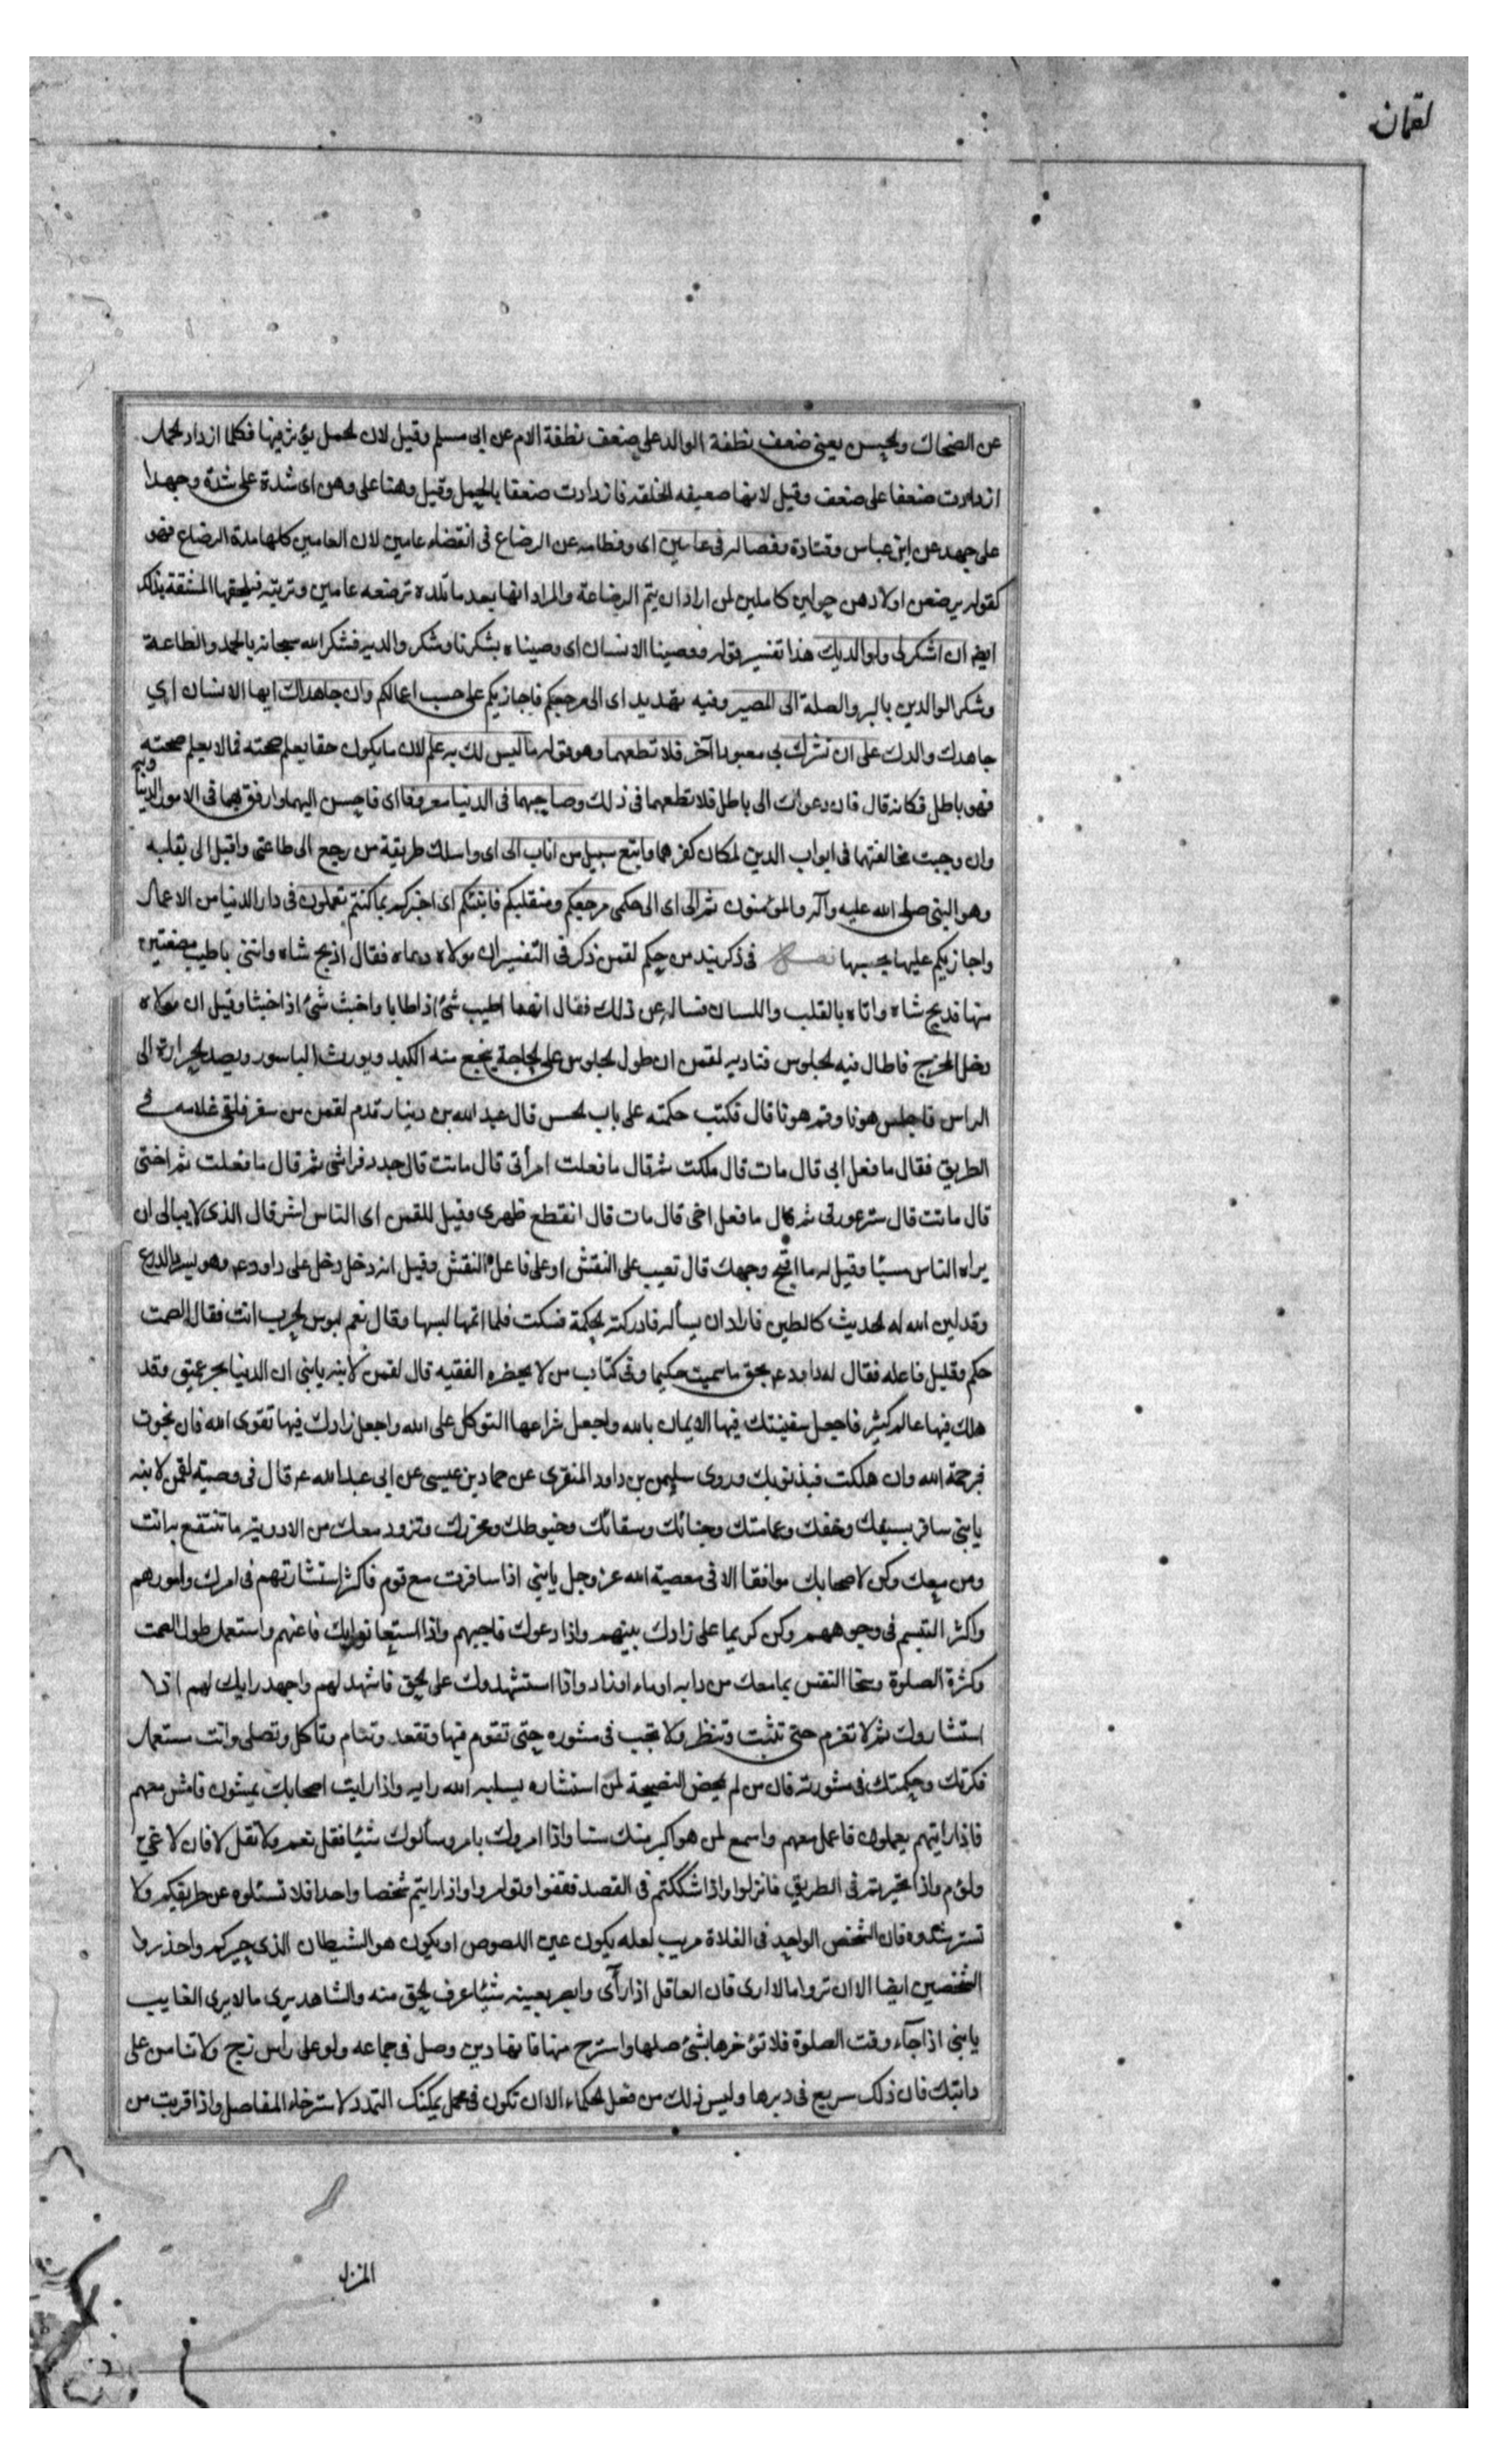 لقمان
عن الضحاك والحسن يعنى ضعف نطفة الوالد على ضعف نطفة الام عن ابى مسلم وقيل لان الحمل يؤثر فيها فكلما ازداد الحمل
ازدادت ضعفا على ضعف وقيل لانها ضعيفه الخلقه فازدادت ضعفا بالحمل وقيل وهنا على وهن اى شدة على شدة وجهدا
على جهد عن ابن عباس وقتادة وفصاله فى عامين اى وفطامه عن الرضاع فى انقضاء عامين لان العامين كلها مدة الرضاع فهو
كقوله يرضعن اولادهن حولين كاملين لمن اراد ان يتم الرضاعة والمراد انها بعد ما تلده ترضعه عامين وتربيه فيلحقها المشقة بذلك
ايضا ان اشكر لى ولوالديك هذا تفسير قوله ووصينا الانسان اى وصيناه بشكرنا وشكر والديه فشكر الله سبحانه بالحمد والطاعة
وشكر الوالدين بالبر والصلة الى المصير وفيه تهديد اى الى مرجعكم فاجازيكم على حسب اعمالكم وان جاهداك ايها الانسان اى
جاهدك والدك على ان تشرك بى معبودا آخر فلا تطعهما وهو قوله ما ليس لك به علم لان ما يكون حقا يعلم صحته فما لا يعلم صحته
فهو باطل فكانه قال فان دعواك الى باطل فلا تطعهما فى ذلك وصاحبهما فى الدنيا معروفا اى فاحسن اليهما وارفق بهما فى الامور الدنياويه
وان وجبت مخالفتهما فى ابواب الدين لمكان كفرهما واتبع سبيل من اناب الى اى واسلك طريقة من رجع الى طاعتى واقبل الى بقلبه
وهو النبى صلى الله عليه وآله والمؤمنون ثم الى اى الى حكمى مرجعكم ومنقلبكم فانبئكم اى اخبركم بما كنتم تعملون فى دار الدنيا من الاعمال
واجازيكم عليها بحسبها فصل فى ذكر نبذ من حكم لقمن ذكر فى التفسير ان مولاه دعاه فقال اذبح شاه واتنى باطيب مضغتين
منها فذبح شاه واتاه بالقلب واللسان فساله عن ذلك فقال انهما اطيب شئ اذا طابا واخبث شئ اذا خبثا وقيل ان مولاه
دخل المخرج فاطال فيه الجلوس فناديه لقمن ان طول الجلوس على الحاجة يفجع منه الكبد ويورث الباسور ويصعد الحرارة الى
الراس فاجلس هونا وقم هونا قال فكتب حكمته على باب الحش قال عبد الله بن دينار قدم لقمن من سفر فلقى غلامه فى
الطريق فقال ما فعل ابى قال مات قال ملكت ثم قال ما فعلت امرأتى قال ماتت قال جدد فراشى ثم قال ما فعلت ثم اختى
قال ماتت قال سترعورتى ثم قال ما فعل اخى قال مات قال انقطع ظهرى وقيل للقمن اى الناس اشر قال الذى لا يبالى ان
يراه الناس مسيئا وقيل له ما اقبح وجهك قال تعيب على النقش او على فاعل النقش وقيل انه دخل دخل على داود ع وهو ليسرد الدرع
وقد لين الله له الحديث كالطين فاراد ان يسأله فادركته الحكمة فسكت فلما اتمها لبسها وقال نعم لبوس الحرب انت فقال الصمت
حكم وقليل فاعله فقال له داود ع بحق ما سميت حكيما وفى كتاب من لا يحضره الفقيه قال لقمن لابنه يابنى ان الدنيا بحر عميق وقد
هلك فيها عالم كثير فاجعل سفينتك فيها الايمان بالله واجعل شراعها التوكل على الله واجعل زادك فيها تقوى الله فان نجوت
فبرحمة الله وان هلكت فبذنوبك وروى سليمن بن داود المنقرى عن حماد بن عيسى عن ابى عبد الله ع قال فى وصية لقمن لابنه
يابنى سافر بسيفك وخفك وعمامتك وحبائك وسقائك وخيوطك ومخرزك وتزود معك من الادويه ما تنتفع به انت
ومن معك وكن لاصحابك موافقا الا فى معصية الله عز وجل يابنى اذا سافرت مع قوم فاكثر استشارتهم فى امرك وامورهم
واكثر التبسم فى وجوههم وكن كريما على زادك بينهم واذا دعوك فاجبهم واذا استعانوا بك فاعنهم واستعمل طول الصمت
وكثرة الصلوة وسخا النفس بما معك من دابه او ماء او زاد واذا استشهدوك على الحق فاشهد لهم واجهد رايك لهم اذا
استشاروك ثم لا تعزم حتى تثبت وتنظر ولا تجب فى مشوره حتى تقوم فيها وتقعد وتنام وتاكل وتصلى وانت مستعمل
فكرتك وحكمتك فى مشورته فان من لم يمحض النصيحة لمن استشاره يسلبه الله رايه واذا رايت اصحابك يمشون فامش معهم
فاذا رايتهم يعملون فاعمل معهم واسمع لمن هو اكبر منك سنا واذا امروك بامر وسألوك شيئا فقل نعم ولا تقل لا فان لا عي
ولؤم واذا تحيرتم فى الطريق فانزلوا واذا شككتم فى القصد فقفوا وتوامروا واذا رايتم شخصا واحدا فلا تسئلوه عن طريقكم ولا
تسترشدوه فان الشخص الواحد فى الفلاة مريب لعله يكون عين اللصوص او يكون هو الشيطان الذى حيركم واحذروا
الشخصين ايضا الا ان تروا ما لا ارى فان العاقل اذا رآى وابصر بعينه شيئا عرف الحق منه والشاهد يرى ما لا يرى الغايب
يابنى اذا جآء وقت الصلوة فلا تؤخرها بشئ صلها واسترح منها فانها دين وصل فى جماعه ولو على راس زج ولا تنامن على
دابتك فان ذلك سريع فى دبرها وليس ذلك من فعل الحكماء الا ان تكون فى محمل يمكنك التمدد لاسترخاء المفاصل واذا قربت من
المنزل